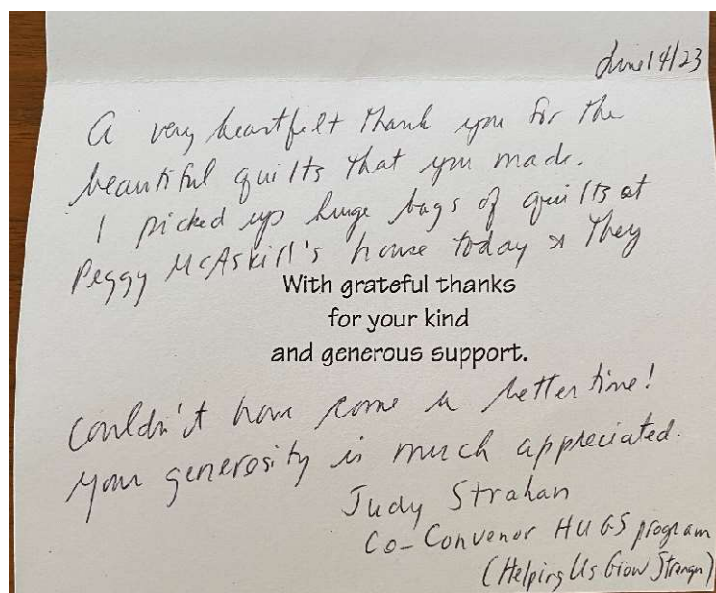 June 14/23
A very heartfelt thank you for the
beautiful quilts that you made.
I picked up huge bags of quilts at
Peggy McAskill's house today & they
With grateful thanks
for your kind
and generous support.
couldn't have come a better time!
Your generosity is much appreciated.
Judy Strahan
Co-Convenor HUGS program
(Helping Us Grow Strong)